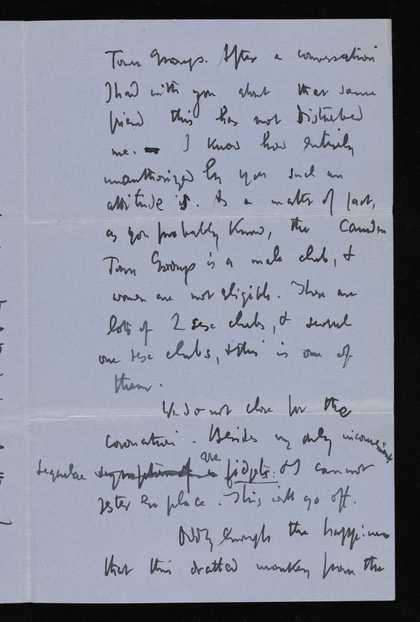 Town Groups. After a conversation
I had with you about that same
friend this has not disturbed
me. – I know how entirely
unauthorized by you such an
attitude is. As a matter of fact,
as you probably know, the Camden
Town Group is a male club, &
women are not eligible. There are
lots of 2 sex clubs, & several
one sex clubs, & this is one of
them.
We do not close for the
coronation. Besides my only inconvenient
sequelae are fidgets. & I cannot
rest in place. This will go off.
Oddly enough the happiness
that this dratted monkey from the